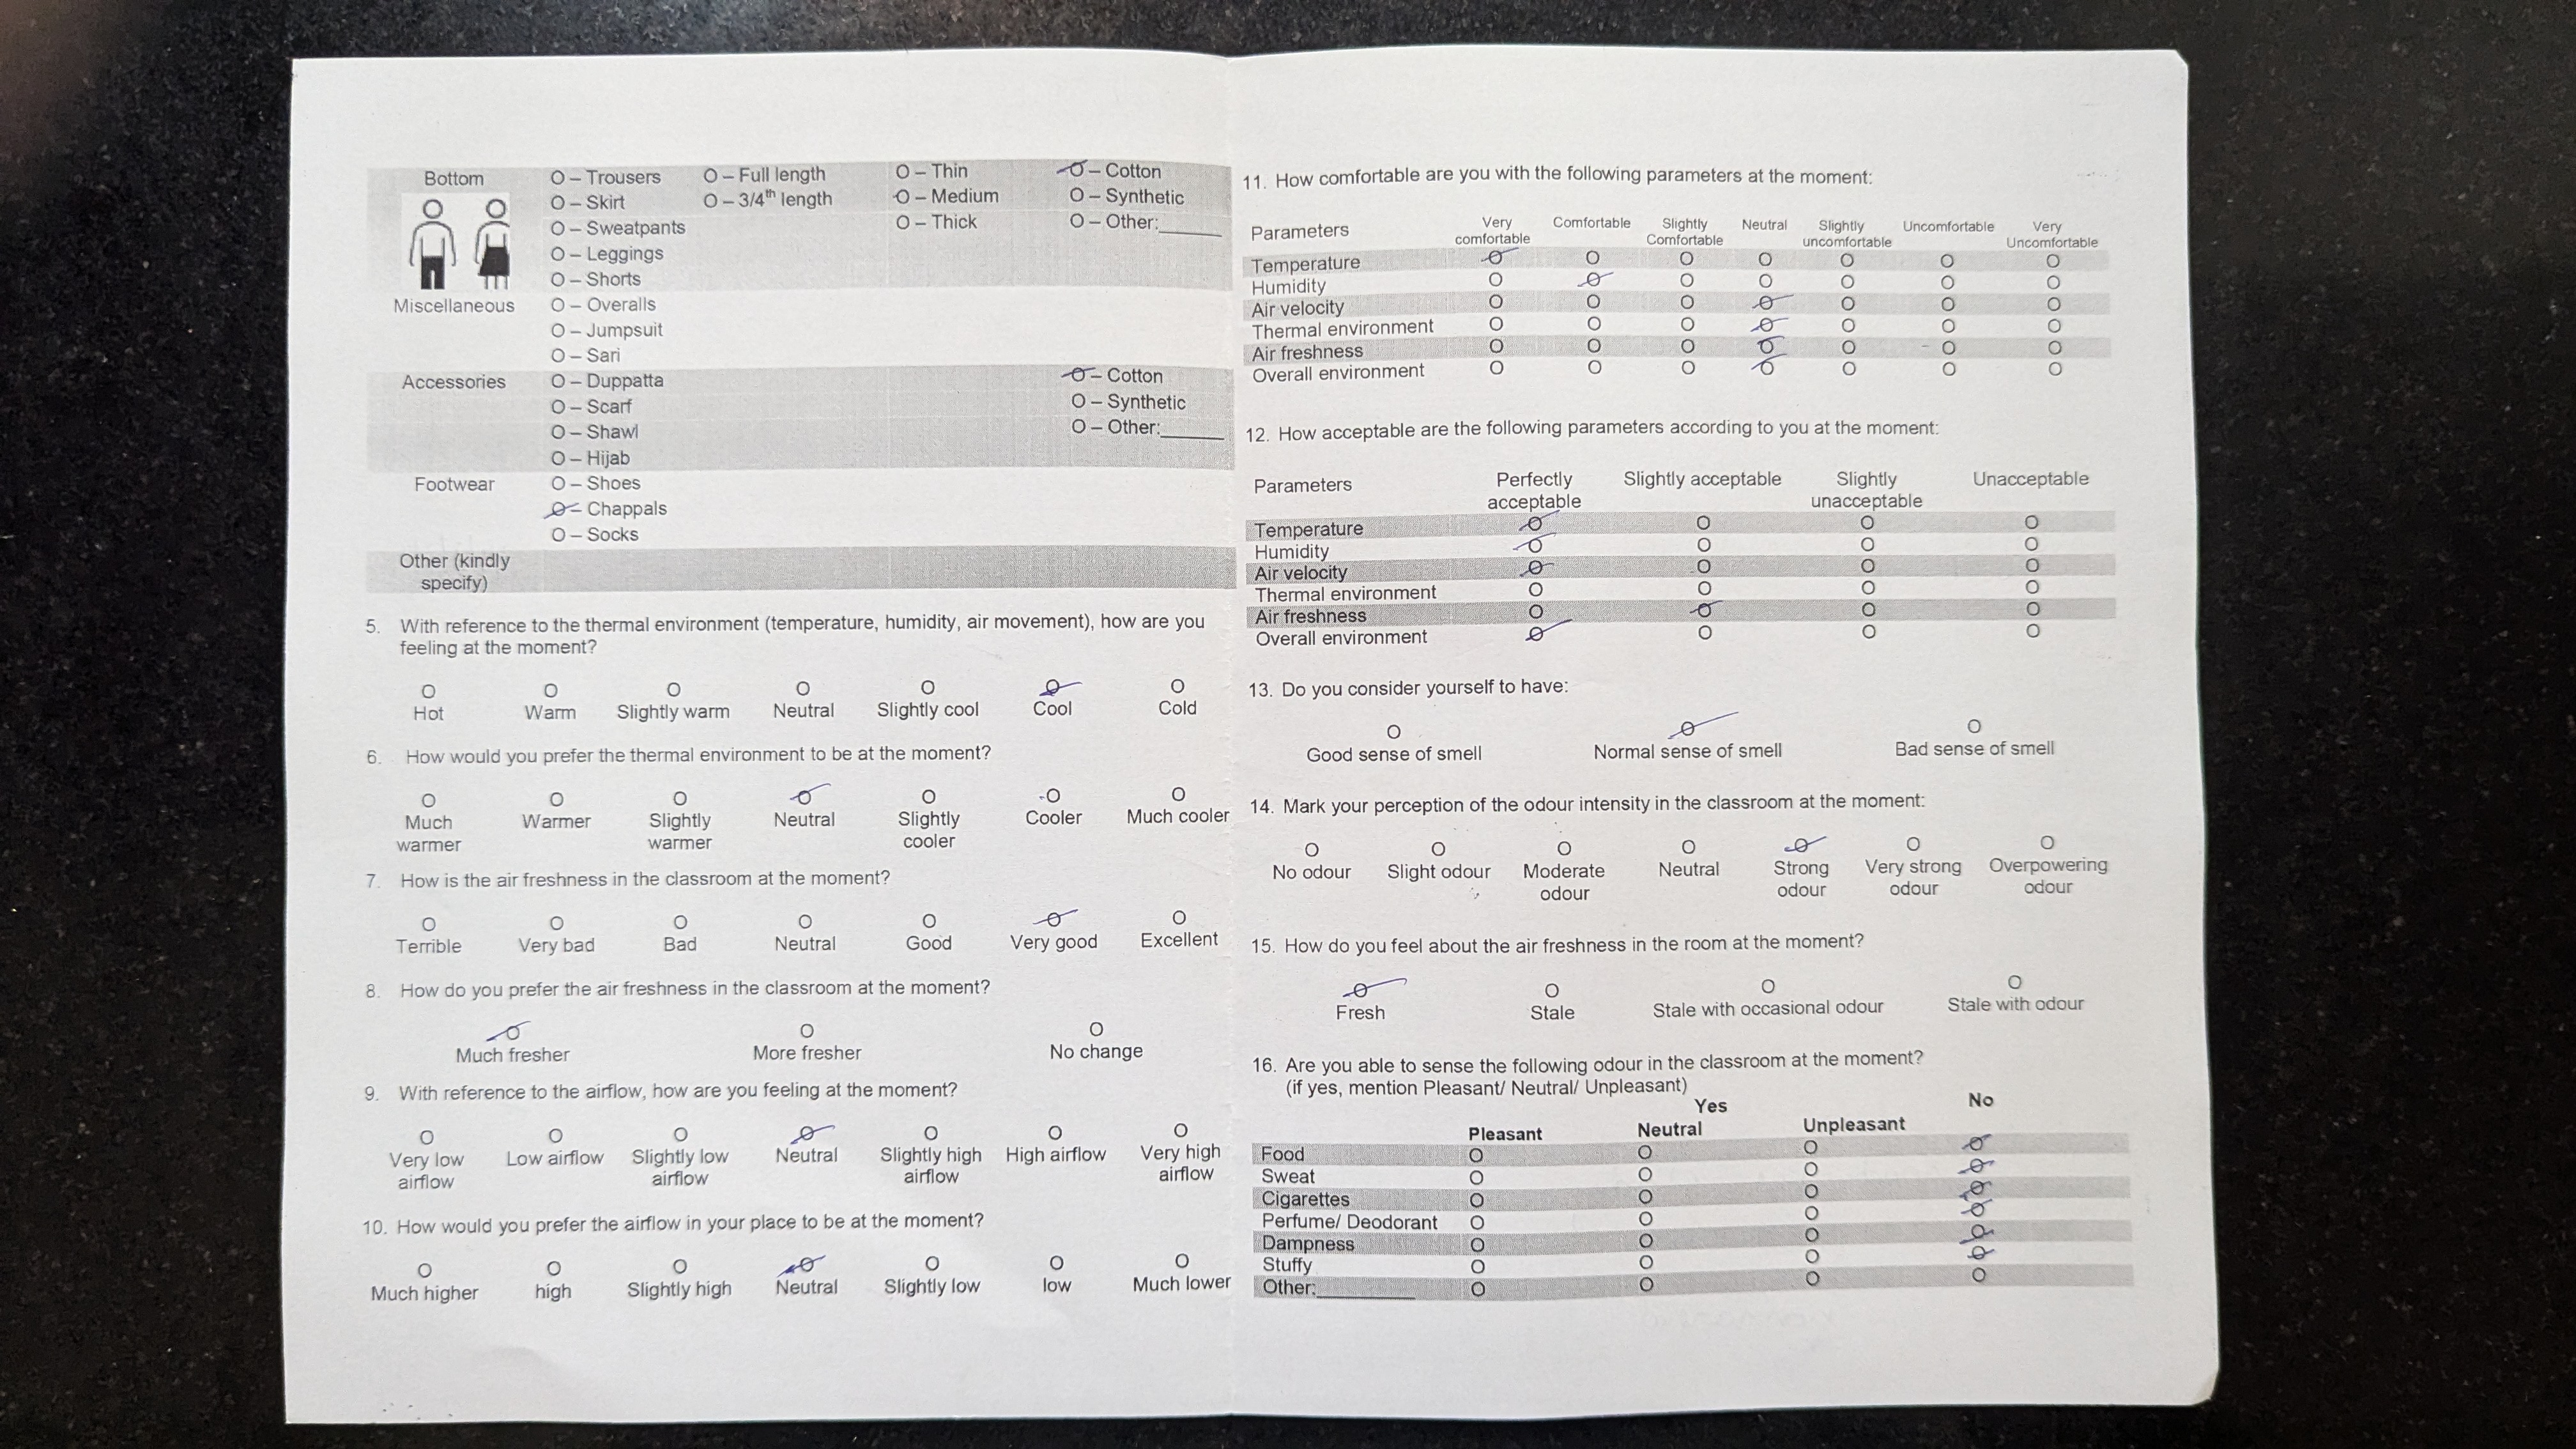 Bottom
O – Trousers
O – Skirt
O – Sweatpants
O – Leggings
O – Shorts
O – Full length
O – 3/4th length
O – Thin
O – Medium
O – Thick
O – Cotton
O – Synthetic
O – Other:______
Miscellaneous
O – Overalls
O – Jumpsuit
O – Sari
Accessories
O – Duppatta
O – Scarf
O – Shawl
O – Hijab
O – Cotton
O – Synthetic
O – Other:______
Footwear
O – Shoes
O – Chappals
O – Socks
Other (kindly
specify)
5. With reference to the thermal environment (temperature, humidity, air movement), how are you
feeling at the moment?
O O O O O O O
Hot Warm Slightly warm Neutral Slightly cool Cool Cold
6. How would you prefer the thermal environment to be at the moment?
O O O O O O O
Much Warmer Slightly Neutral Slightly Cooler Much cooler
warmer warmer cooler
7. How is the air freshness in the classroom at the moment?
O O O O O O O
Terrible Very bad Bad Neutral Good Very good Excellent
8. How do you prefer the air freshness in the classroom at the moment?
O O O
Much fresher More fresher No change
9. With reference to the airflow, how are you feeling at the moment?
O O O O O O O
Very low Low airflow Slightly low Neutral Slightly high High airflow Very high
airflow airflow airflow airflow
10. How would you prefer the airflow in your place to be at the moment?
O O O O O O O
Much higher high Slightly high Neutral Slightly low low Much lower
11. How comfortable are you with the following parameters at the moment:
Parameters Very Comfortable Slightly Neutral Slightly Uncomfortable Very
comfortable Comfortable uncomfortable Uncomfortable
Temperature O O O O O O O
Humidity O O O O O O O
Air velocity O O O O O O O
Thermal environment O O O O O O O
Air freshness O O O O O O O
Overall environment O O O O O O O
12. How acceptable are the following parameters according to you at the moment:
Parameters Perfectly Slightly acceptable Slightly Unacceptable
acceptable unacceptable
Temperature O O O O
Humidity O O O O
Air velocity O O O O
Thermal environment O O O O
Air freshness O O O O
Overall environment O O O O
13. Do you consider yourself to have:
O O O
Good sense of smell Normal sense of smell Bad sense of smell
14. Mark your perception of the odour intensity in the classroom at the moment:
O O O O O O O
No odour Slight odour Moderate Neutral Strong Very strong Overpowering
odour odour odour odour
15. How do you feel about the air freshness in the room at the moment?
O O O O
Fresh Stale Stale with occasional odour Stale with odour
16. Are you able to sense the following odour in the classroom at the moment?
(if yes, mention Pleasant/ Neutral/ Unpleasant)
Yes No
Pleasant Neutral Unpleasant
Food O O O O
Sweat O O O O
Cigarettes O O O O
Perfume/ Deodorant O O O O
Dampness O O O O
Stuffy O O O O
Other:_________ O O O O